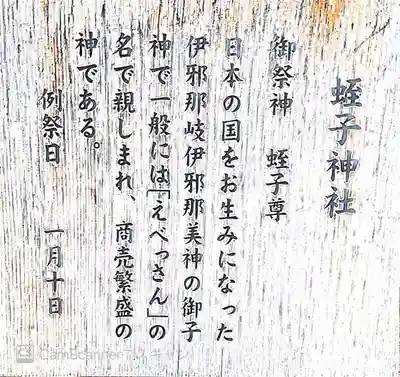 蛭子神社
御祭神 蛭子尊
日本の国をお生みになった
伊邪那岐伊邪那美神の御子
神で一般には「えべっさん」の
名で親しまれ、商売繁盛の
神である。
例祭日 一月十日
CamScanner